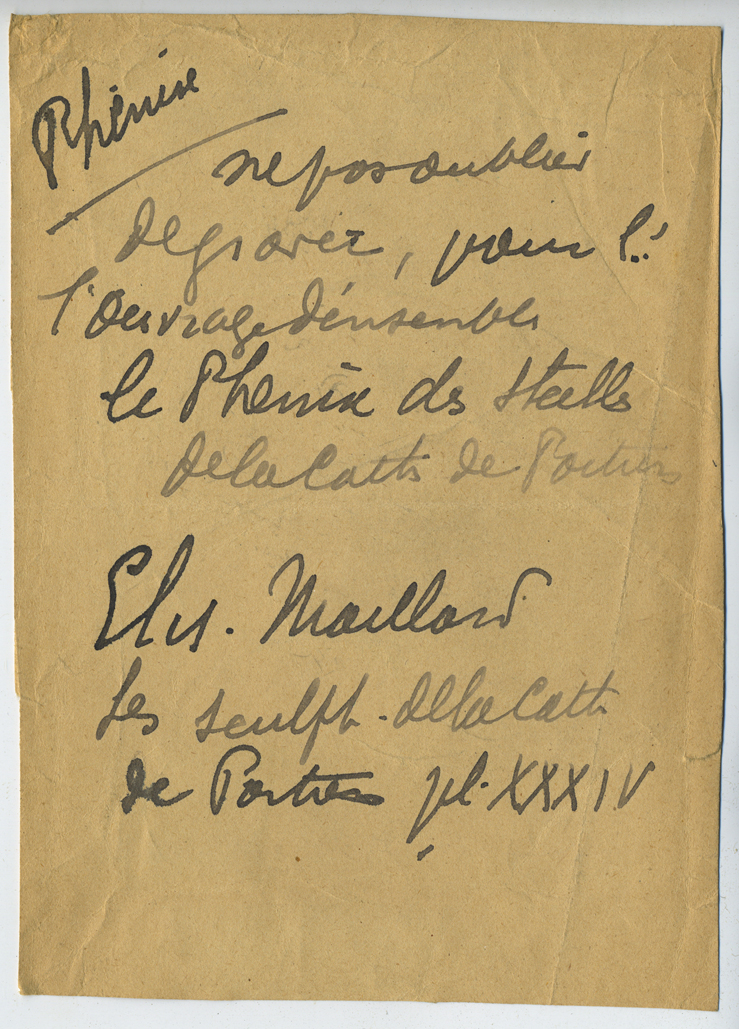 Phénix
ne pas oublier
de graver, pour l'
l'ouvrage d'ensemble
le Phenix des stalles
de la Cath de Poitiers
Elis. Maillard
Les sculpt. de la Cath
de Poitiers pl. XXXIV